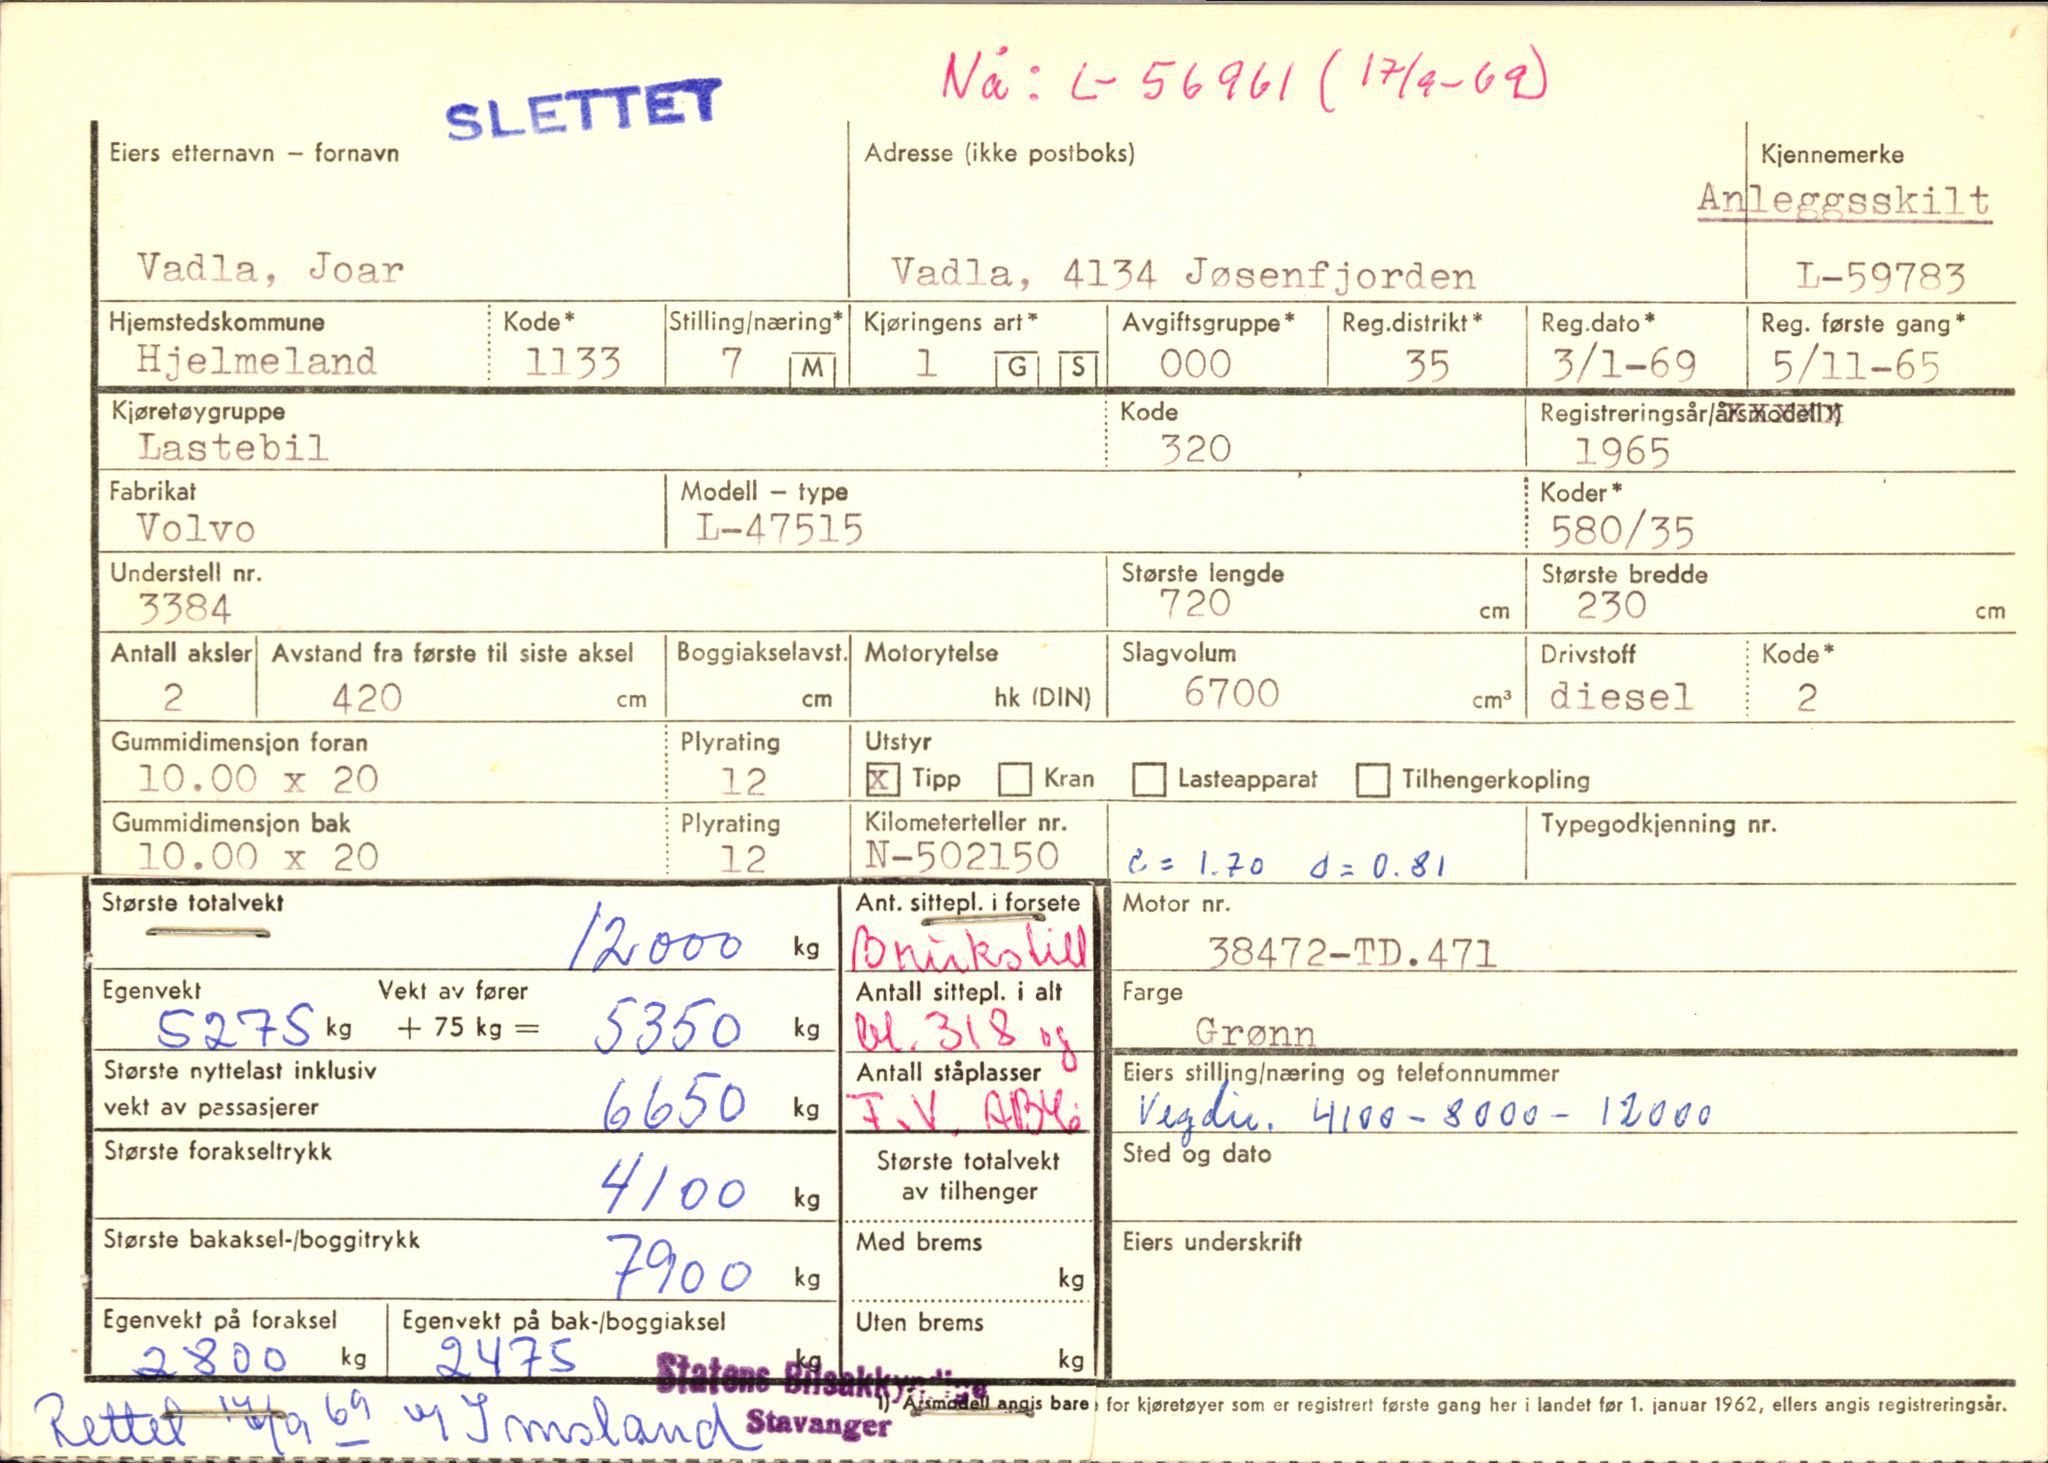 Nå: L-56961 (17/9-69)
SLETTET
Eiers etternavn – fornavn Adresse (ikke postboks) Kjennemerke
Anleggsskilt
Vadla, Joar Vadla, 4134 Jøsenfjorden L-59783
Hjemstedskommune Kode* Stilling/næring* Kjøringens art* Avgiftsgruppe* Reg.distrikt* Reg.dato* Reg. første gang*
Hjelmeland 1133 7 M 1 G S 000 35 3/1-69 5/11-65
Kjøretøygruppe Kode Registreringsår/årsmodell 1)
Lastebil 320 1965
Fabrikat Modell – type Koder*
Volvo L-47515 580/35
Understell nr. Største lengde Største bredde
3384 720 cm 230 cm
Antall aksler Avstand fra første til siste aksel Boggiakselavst. Motorytelse Slagvolum Drivstoff Kode*
2 420 cm cm hk (DIN) 6700 cm³ diesel 2
Gummidimensjon foran Plyrating Utstyr
10.00 x 20 12 x Tipp Kran Lasteapparat Tilhengerkopling
Gummidimensjon bak Plyrating Kilometerteller nr. Typegodkjenning nr.
10.00 x 20 12 N-502150 c = 1.70 d = 0.81
Største totalvekt Ant. sittepl. i forsete Motor nr.
12000 kg Brukstill 38472-TD.471
Egenvekt Vekt av fører Antall sittepl. i alt Farge
5275 kg + 75 kg = 5350 kg bl. 318 og Grønn
Største nyttelast inklusiv Antall ståplasser Eiers stilling/næring og telefonnummer
vekt av passasjerer 6650 kg F.V. Vegdir. 4100 - 8000 - 12000
Største forakseltrykk Største totalvekt Sted og dato
4100 kg av tilhenger
Største bakaksel-/boggitrykk Med brems Eiers underskrift
7900 kg kg
Egenvekt på foraksel Egenvekt på bak-/boggiaksel Uten brems
2800 kg 2475 kg kg
Statens Bilsakkyndige
1) Årsmodell angis bare for kjøretøyer som er registrert første gang her i landet før 1. januar 1962, ellers angis registreringsår.
Stavanger
Rettet 69 Imsland